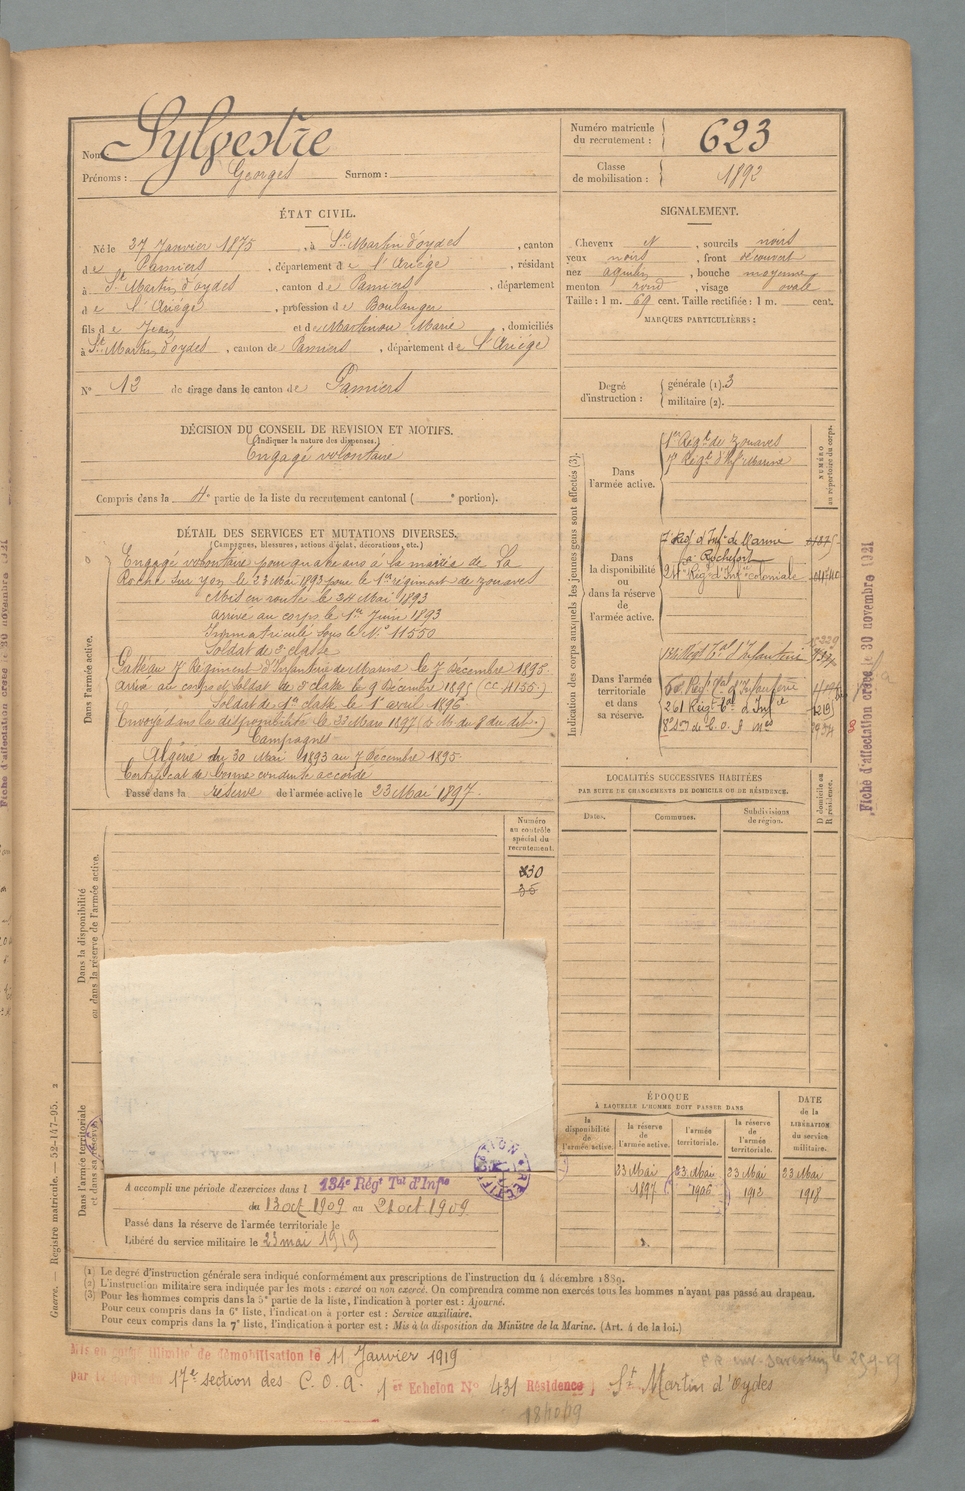 Nom : Sylvestre
Prénoms : Georges Surnom :
Numéro matricule du recrutement : 623
Classe de mobilisation : 1892
ÉTAT CIVIL.
Né le 27 Janvier 1875, à St Martin d'oydes, canton
de Pamiers, département de l'Ariège, résidant
à St Martin d'oydes, canton de Pamiers, département
de l'Ariège, profession de Boulanger
fils de Jean et de Martinou Marie, domiciliés
à St Martin d'oydes, canton de Pamiers, département de l'Ariège
N° 12 de tirage dans le canton de Pamiers
SIGNALEMENT.
Cheveux N, sourcils noirs
yeux noirs, front découvert
nez aquilin, bouche moyenne
menton rond, visage ovale
Taille : 1 m. 69 cent. Taille rectifiée : 1 m. cent.
MARQUES PARTICULIÈRES :
Degré d'instruction : générale (1). 3
militaire (2).
DÉCISION DU CONSEIL DE REVISION ET MOTIFS.
(Indiquer la nature des dispenses.)
Engagé volontaire
Compris dans la 4e partie de la liste du recrutement cantonal ( e portion).
DÉTAIL DES SERVICES ET MUTATIONS DIVERSES.
(Campagnes, blessures, actions d'éclat, décorations, etc.)
Dans l'armée active.
Engagé volontaire pour quatre ans à la mairie de La
Roche sur yon le 23 Mai 1893 pour le 1er régiment de zouaves
Mis en route le 24 Mai 1893
Arrivé au corps le 1er Juin 1893
Immatriculé sous le N° 11550
Soldat de 2e classe
Passé au 7e Régiment d'Infanterie de Marine le 7 Décembre 1895.
Arrivé au corps et soldat de 2e classe le 9 Décembre 1895
Soldat de 1ère classe le 1er avril 1896
Envoyé dans la disponibilité le 23 Mars 1897
Campagnes
Algérie du 30 Mai 1893 au 7 Décembre 1895
Certificat de bonne conduite accordé
Passé dans la réserve de l'armée active le 23 Mai 1897.
Indication des corps auxquels les jeunes gens sont affectés (3).
NUMÉRO au répertoire du corps.
Dans l'armée active.
1er Régt de zouaves
7e Régt d'Infie Marine
Dans la disponibilité ou dans la réserve de l'armée active.
7e Régt d'Infie de Marine
à Rochefort
Dans l'armée territoriale et dans sa réserve.
134e Régt Tal d'Infanterie
261 Régt Tal d'Infie
Fiche d'affectation créée le 30 novembre 1921
LOCALITÉS SUCCESSIVES HABITÉES
PAR SUITE DE CHANGEMENTS DE DOMICILE OU DE RÉSIDENCE.
Dates. Communes. Subdivisions de région. D domicile ou R résidence.
Dans la disponibilité ou dans la réserve de l'armée active.
Numéro au contrôle spécial du recrutement.
Dans l'armée territoriale et dans sa réserve.
A accompli une période d'exercices dans l 134e Régt Tal d'Infie
du 13 oct 1909 au 21 oct 1909
Passé dans la réserve de l'armée territoriale le
Libéré du service militaire le 23 mai 1919
ÉPOQUE
À LAQUELLE L'HOMME DOIT PASSER DANS
la disponibilité de l'armée active.
la réserve de l'armée active.
l'armée territoriale.
la réserve de l'armée territoriale.
DATE de la LIBÉRATION du service militaire.
23 Mai 1897
23 Mai 1906
23 Mai 1912
23 Mai 1918
(1) Le degré d'instruction générale sera indiqué conformément aux prescriptions de l'instruction du 4 décembre 1889.
(2) L'instruction militaire sera indiquée par les mots : exercé ou non exercé. On comprendra comme non exercés tous les hommes n'ayant pas passé au drapeau.
(3) Pour les hommes compris dans la 5e partie de la liste, l'indication à porter est : Ajourné.
Pour ceux compris dans la 6e liste, l'indication à porter est : Service auxiliaire.
Pour ceux compris dans la 7e liste, l'indication à porter est : Mis à la disposition du Ministre de la Marine. (Art. 4 de la loi.)
Guerre. — Registre matricule. — 52-147-95.
Mis en congé illimité de démobilisation le 11 Janvier 1919
par le 17e section des C.O.A. 1er Echelon N° 431 Résidence St Martin d'Oydes